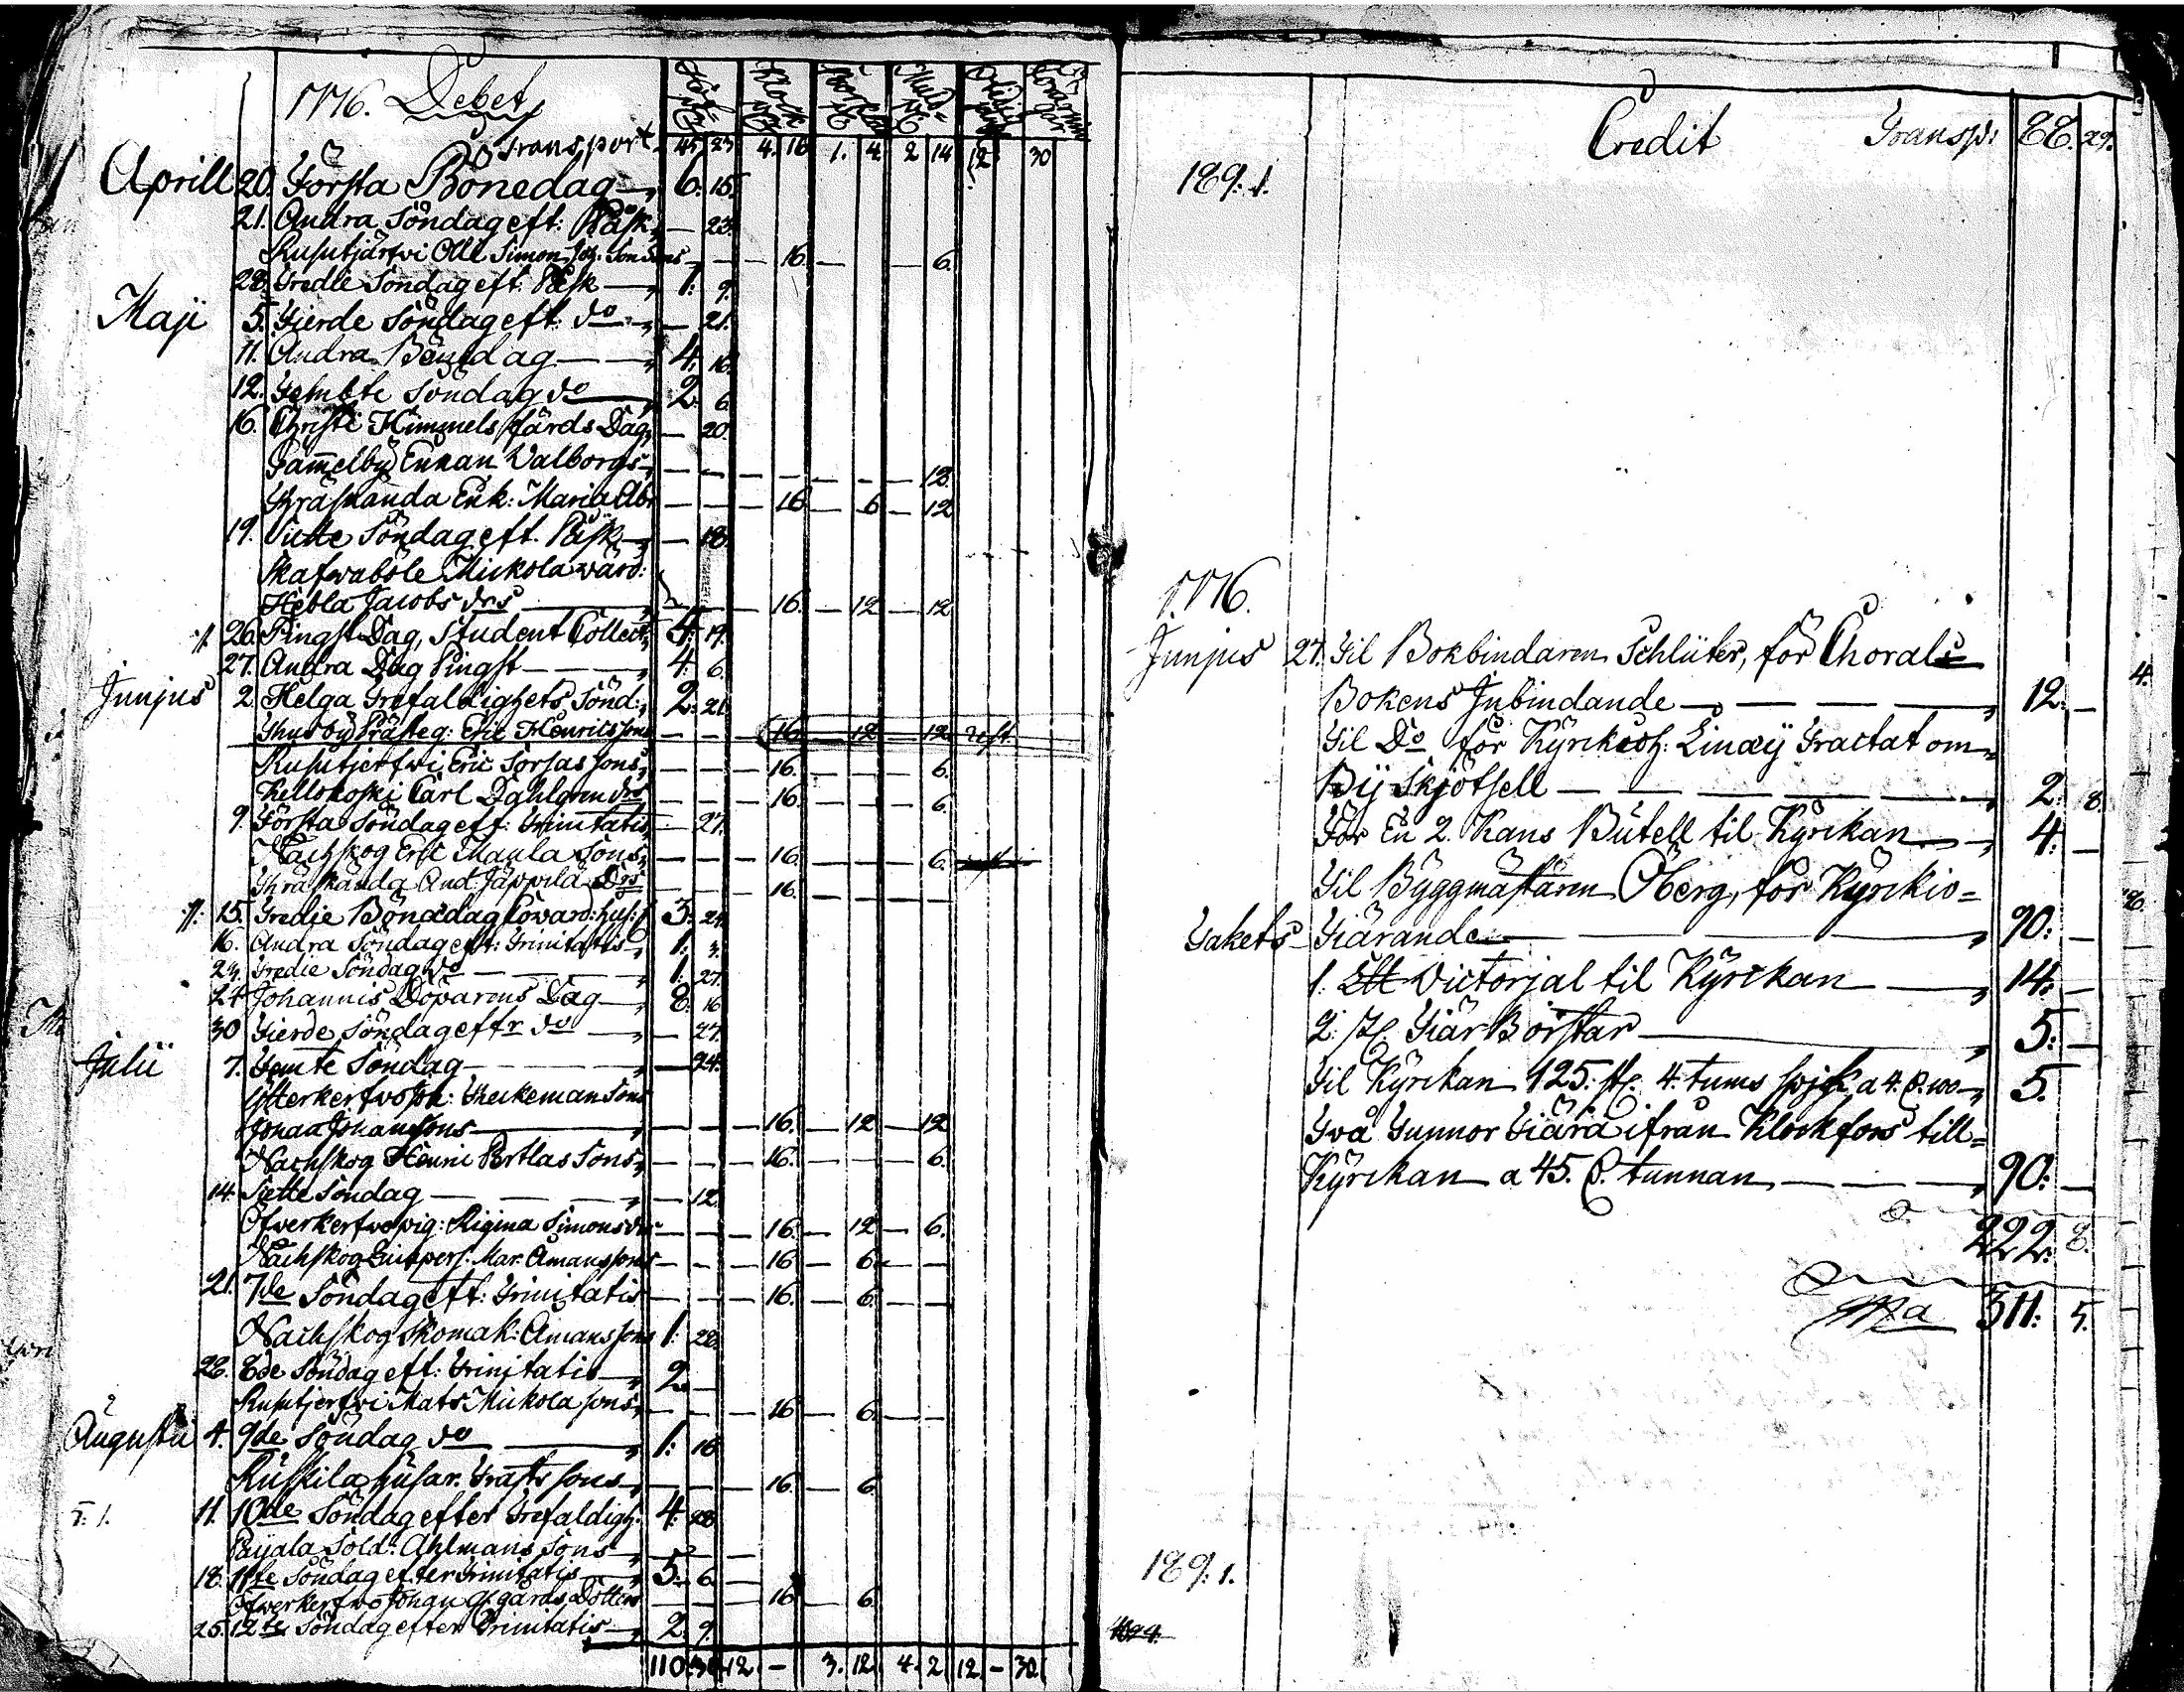 1776. Debet
Transport 45 23 4. 16 1. 4 2 14 12 30
Aprill 20. Första Bönedag 6. 15.
21. Andra Söndag eft: Påsk — 23.
Rusutjärfvi Olle Simon Joh: Son Sons — — — 16. — — 6.
28. Tredie Söndag eft: Påsk — 1. 9.
Maji 5. Fierde Söndag eft: do — 21.
11. Andra Bönedag — 4. 16.
12. Femte Söndag do 2. 6.
16. Christi Himmels färds Dag, — 20.
Gammelby Enkan Valborgs — — — — — — 12.
Träskända Enk: Maria Abr — — — 16 — 6 — 12
19. Siette Söndag eft. Påsk — 18.
Skafvaböle Mickola värd:
Hebla Jacobs drs — — 16. — 12 — 12
26. Pingst Dag, Student Collect, 4. 19.
27. Andra Dag Pingst — 4. 6.
Junjus 2. Helga Trefaldighets Sönd: 2. 21.
Thusby Prästeg: Eric Henrics sons — — — 16. — 12 — 12
Rusutjerfvi Eric Sorsas sons, — — — 16. — — — 6.
Kellokoski Carl Dahlgren drs — — — 16. — — — 6.
9. Första Söndag eft: Trinitatis — 27.
Nachskog Eric Maula Sons, — — — 16. — — — 6.
Träskända And: Jäppilä Drs — — 16. — — —
15. Tredie Bönedag 3. 24.
16. Andra Söndag eft: Trinitatis 1. 3.
23. Tredie Söndag do — 1. 27.
24 Johannis Döparens Dag 8. 16
30 Fierde Söndag eftr do — 27.
Julii 7. Femte Söndag — 24.
Ytterkerfvo
Jonaa Johans sons — — — 16. — 12 — 12
Nachskog Henric Pertlas Sons, — — — 16. — — — 6.
14. Siette Söndag — 12.
Öfverkerfvo pig: Regina Simons dr — — — 16. — 12 — 6.
Nachskog Mar. Amans sons — — — 16 — 6. — —
21. 7de Söndag eft: Trinitatis — — — 16. — 6. — —
Nachskog Skomak: Amans sons 1: 28.
28. 8de Söndag eft: Trinitatis 2. —
Rusutjerfvi Mats Mickola sons, — — — 16 — 6. — —
Augusti 4. 9de Söndag do — 1: 16.
Ruskila husar: sons — — — 16. — 6.
11. 10de Söndag efter Trefaldigh: 4. 28
Paijala Sold: Ahlmans Sons — — —
18. 11te Söndag efter Trinitatis 5. 6. —
Öfverkerfvo Johan gårds Dotters — — — 16 — 6.
25. 12te Söndag efter Trinitatis 2. 9.
110. 31. 12. - 3. 12. 4. 2 12. - 30.
Credit Transp: 88. 29.
189. 1.
1776.
Junjus 27. Til Bokbindaren Schlüter, för Choral
Bokens Inbindande — 12. —
Til Do för Tractat om
Bij Skjötsell — 2. 8.
För En 2. Kans Butell til Kyrckan 4. —
Til Byggmästaren Öberg, för Kyrckio=
Takets Tiärande — 90. —
1. Victorjal til Kyrckan — 14. —
2. st. Tiär Borstar — 5: —
Til Kyrckan 125. st. 4. tums spijk a 4. P. 100 — 5.
Två Tunnor Tiära ifrån Klockfors till=
Kyrckan a 45. P. tunnan — 90. —
222. 8.
311. 5.
189. 1.